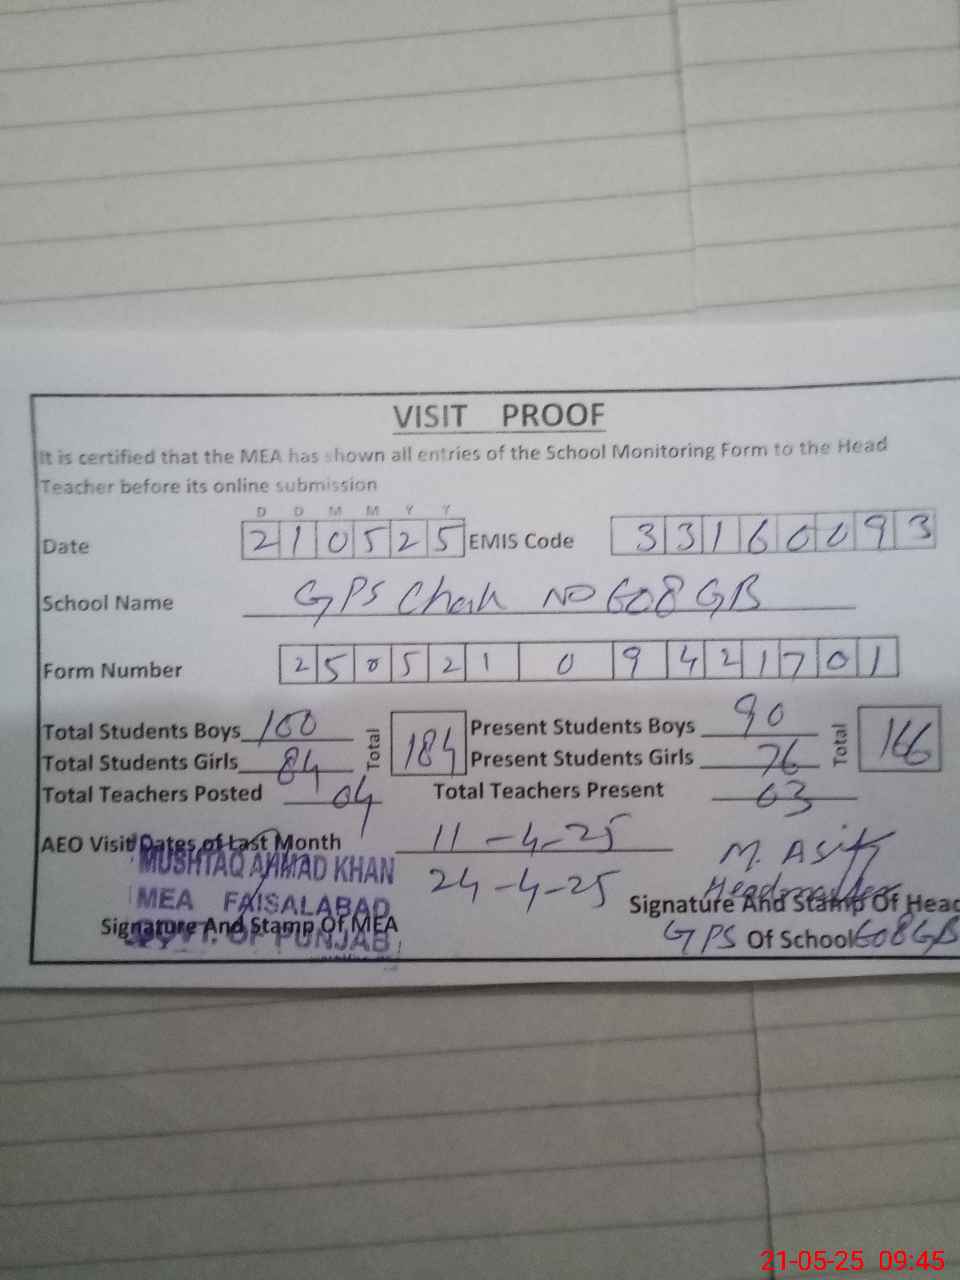 VISIT PROOF
It is certified that the MEA has shown all entries of the School Monitoring Form to the Head
Teacher before its online submission
D D M M Y Y
Date 210525 EMIS Code 33160093
School Name GPS Chak NO 608 GB
Form Number 2505210 9421701
Total Students Boys 100 Total 184 Present Students Boys 90 Total 166
Total Students Girls 84 Present Students Girls 76
Total Teachers Posted 04 Total Teachers Present 03
AEO Visit Dates of Last Month 11-4-25
24-4-25
MUSHTAQ AHMAD KHAN
MEA FAISALABAD
GOVT. OF PUNJAB
Signature And Stamp Of MEA
M. Asif
Headmaster
Signature And Stamp Of Head
GPS Of School 608 GB
21-05-25 09:45